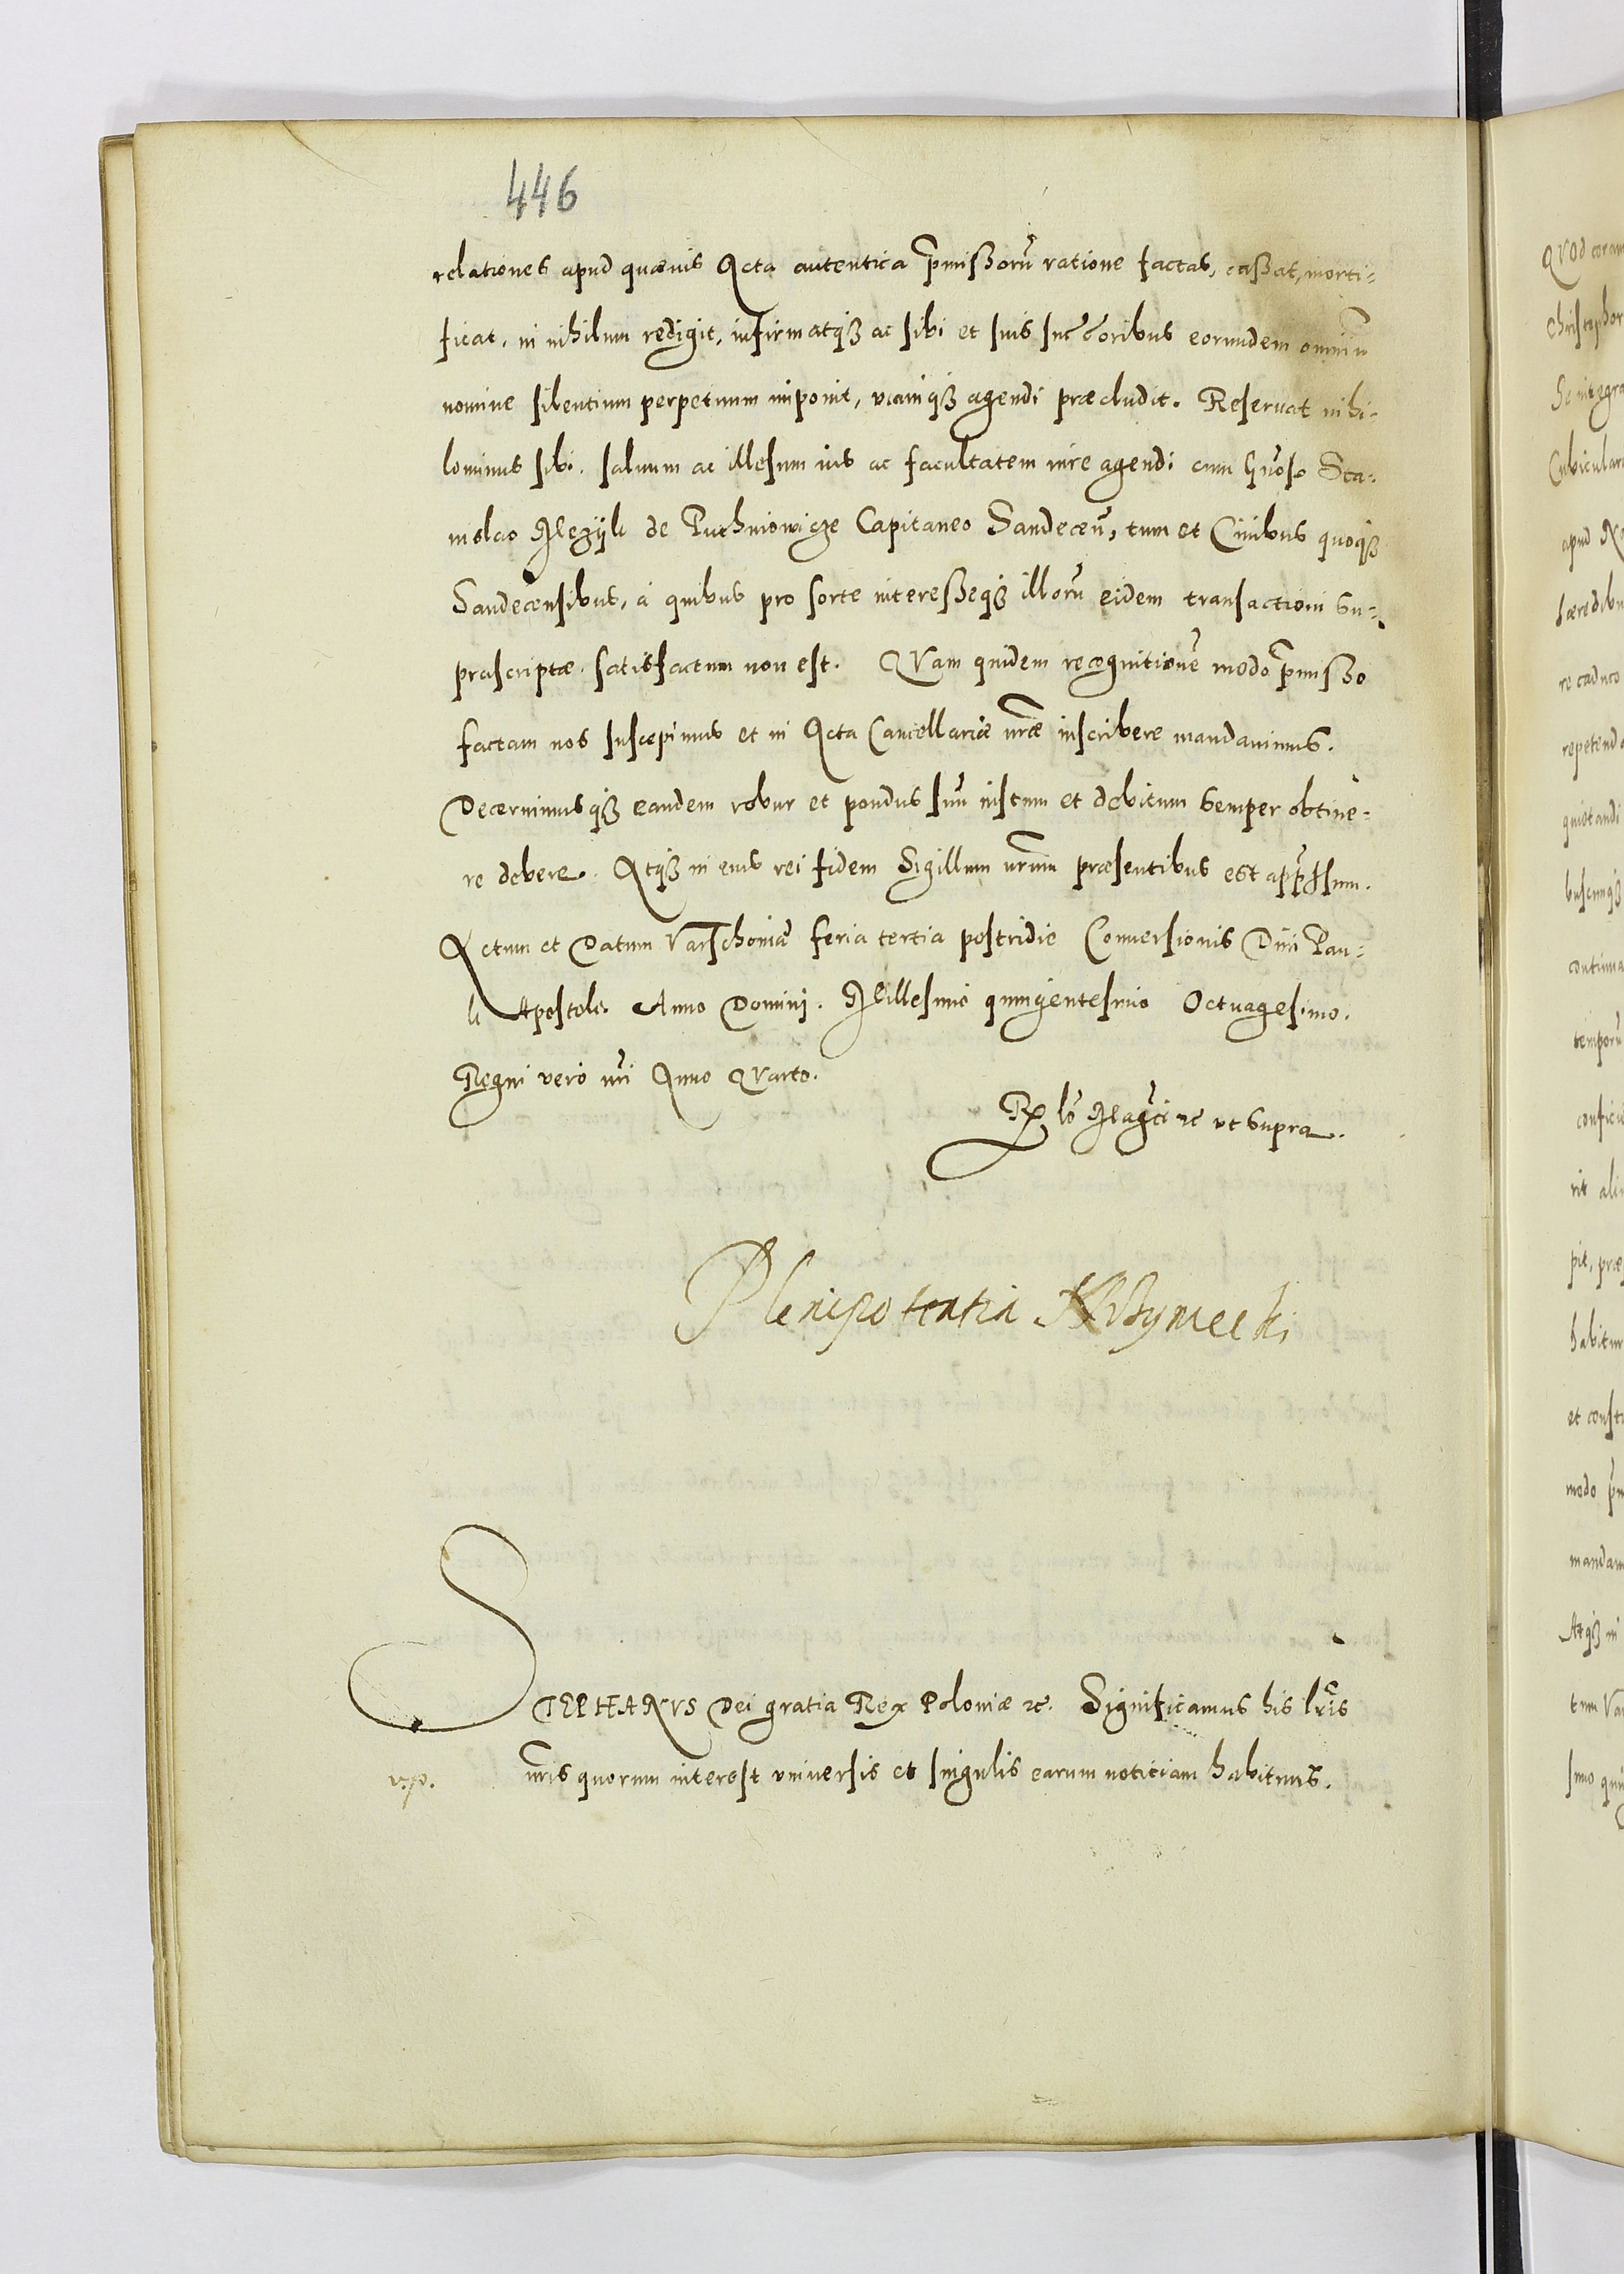 446
relationes apud quævis Acta autentica p̄missorū ratione factas, cassat, morti-
ficat, in nihilum redigit, infirmatqꝫ ac sibi et suis succoribus eorundem omniū
nomine silentium perpetuum imponit, viamqꝫ agendi præcludit. Reservat nihi-
lominus sibi salvum ac illesum ius ac facultatem iure agendi cum Gnoso Sta-
nislao Mezyk de Puchniowicze Capitaneo Sandeceń, tum et Civibus quoqꝫ
Sandecensibus, à quibus pro sorte interesseqꝫ illorū eidem transactioni su-
prascriptæ satisfactum non est. QVam quidem recognitionē modo p̄misso
factam nos suscepimus et in Acta Cancellariæ nr̄æ inscribere mandavimus.
Decernimusqꝫ eandem robur et pondus suū iustum et debitum semper obtine-
re debere. Atqꝫ in eius rei fidem Sigillum nr̄um præsentibus est appr̄ssum.
Actum et Datum Varschoviæ feria tertia postridie Conversionis Divi Pau-
li Apostoli. Anno Domini. Millesimo quingentesimo Octuagesimo.
Regni vero nr̄i Anno QVarto.
Rx lō Magci ꝛc ut supra.
Plenipotentia
STEPHANVS Dei gratia Rex Poloniæ ꝛc. Significamus his lr̄is
v.p.
nr̄is quorum interest universis et singulis earum noticiam habituris.
QVOd coram
Christophor
Cubicular
apud
hæredibu
re caduco
repetend
quietandi
buscunqꝫ
continua
temporū
confici
rit ali
pit, præ
habitur
et consti
modo
mandam
Atqꝫ in
tum Va
simo qui